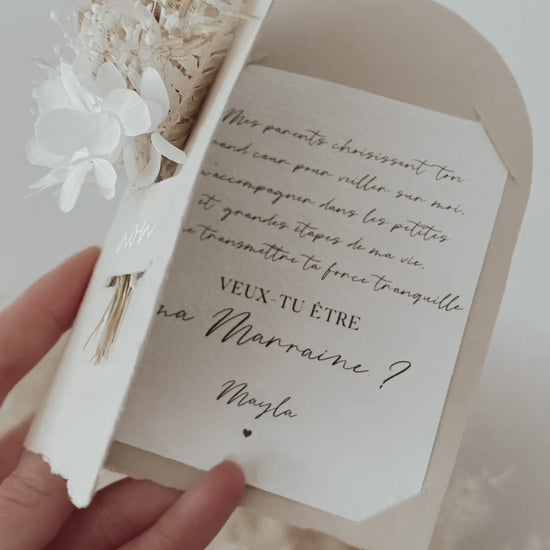 Mes parents choisissent ton
and cœur pour veiller sur moi,
'accompagner dans les petites
et grandes étapes de ma vie,
e transmettre ta force tranquille
VEUX-TU ÊTRE
ma Marraine ?
Mayla